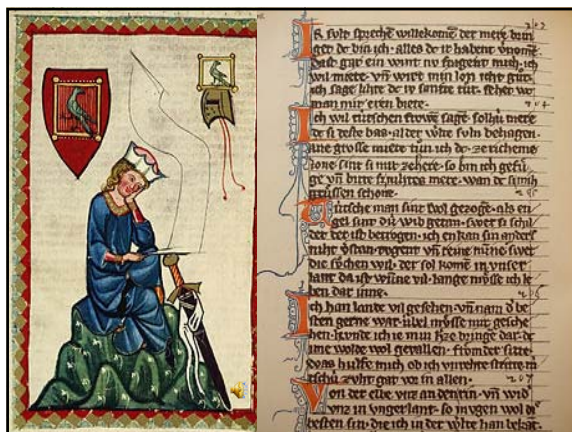 IR sult sprechē willekomen der mere brin
get dc bin ich. alles dc ir habent vnomē
dast gar ein wint nv fragent mich. ich
wil miete. vñ wirt min lon icht gůt.
ich sage lihte dc iv sanfte tůt. seht wc
man mir eren biete. 204
Ich wil tútschen frowē sagē solhú mere
dc si deste bas. al der w̾lte suln behagen
ane grosse miete tůn ich dc. ze richeme
lone sint si mir ze here. so bin ich gefů
ge vñ bitte si nihtes mere. wan dc si mich
grůssen schone.
Tútsche man sint wol gezogē. als en
gel sint dú wib getan. swer si schil
tet der ist betrogen. ich enkan sin anders
niht v̾stan. tugent vñ reine minne swer
die sůchen wil. der sol komē in vnser
lant da ist wūne vil. lange můsse ich le
ben dar inne.
Ich han lande vil gesehen. vñ nam d̾ be
sten gerne war. úbel můsse mir gesche
hen. kunde ich ie min h̾ze bringē dar. dc
ime wolde wol gevallen. fromder sitte
was hulfe mich ob ich vnrehte stritte
tútschú zuht gat vor in allen. 207
Von der elbe vnz an den rin. vñ wid̾
vnz in vngerlant. so mvgen wol die
besten sin. die ich in der w̾lte han bekāt.